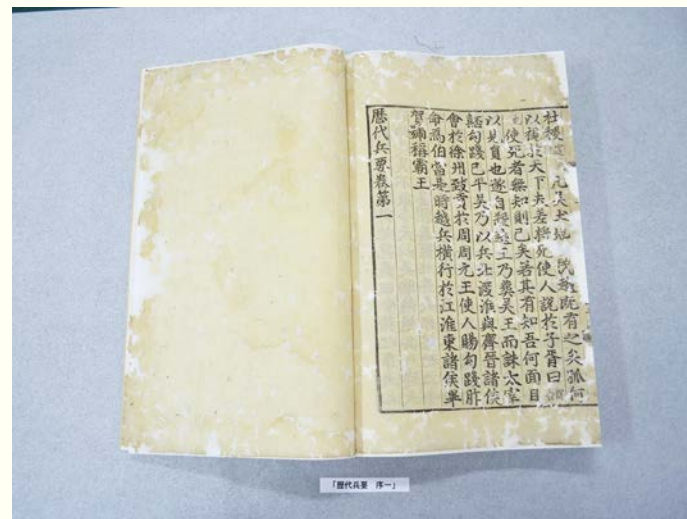 社稷吳土地民既有之矣孤何
以視於天下夫差將死使人說於子胥曰
使死者無知則已矣若其有知吾何面目
以見員也遂自殺越王乃葬吳王而誅太宰
嚭勾踐已平吳乃以兵北渡淮與齊晉諸侯
會於徐州致貢於周周元王使人賜勾踐胙
命爲伯當是時越兵橫行於江淮東諸侯畢
賀號稱霸王
歷代兵要卷第一
「歴代兵要　序一」